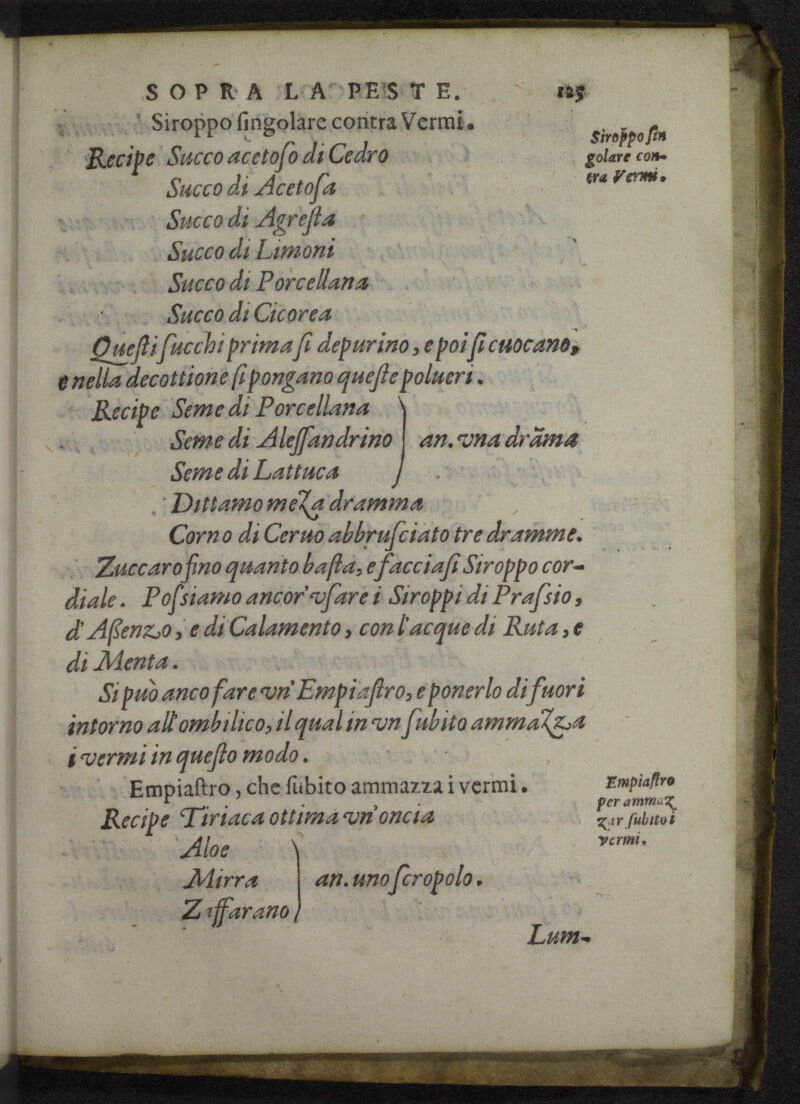 SOPRA LA PESTE. 125
Siroppo ſingolare contra Vermi.
Siroppo ſin
golare con-
tra Vermi.
Recipe Succo acetoſo di Cedro
Succo di Acetoſa
Succo di Agreſta
Succo di Limoni
Succo di Porcellana
Succo di Cicorea
Queſti ſucchi prima ſi depurino, e poi ſi cuocano,
e nella decottione ſi pongano queſte polueri.
Recipe Seme di Porcellana
Seme di Aleſſandrino } an. vna drãma
Seme di Lattuca
Dittamo meza dramma
Corno di Ceruo abbruſciato tre dramme.
Zuccaro fino quanto baſta, e facciaſi Siroppo cor-
diale. Poſsiamo ancor' vſare i Siroppi di Praſsio,
d'Aſſenzo, e di Calamento, con l'acque di Ruta, e
di Menta.
Si può anco fare vn' Empiaſtro, e ponerlo di fuori
intorno all'ombilico, il qual in vn ſubito ammazza
i vermi in queſto modo.
Empiaſtro, che ſubito ammazza i vermi.
Empiaſtro
per ammaz
zar ſubito i
vermi.
Recipe Tiriaca ottima vn'oncia
Aloe
Mirra } an. uno ſcropolo.
Zaffarano
Lum-